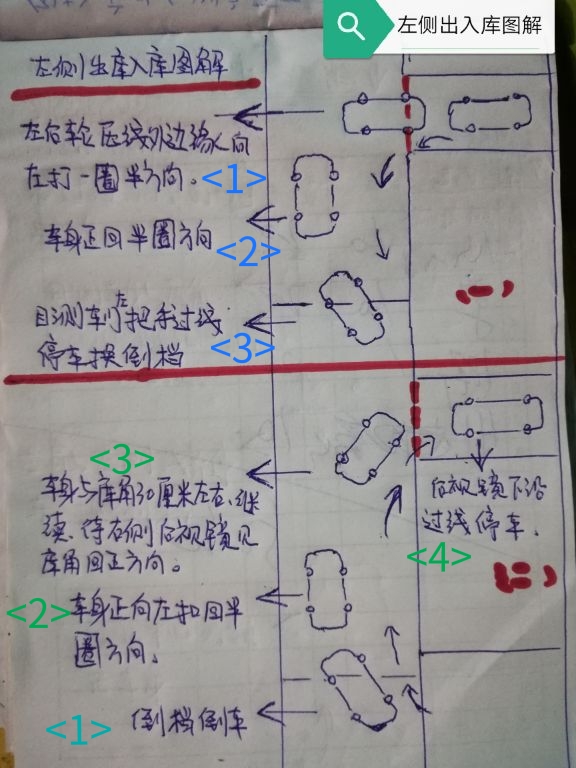 左侧出库入库图解
左侧出库入库图解
左后轮压线外边缘，向
左打一圈半方向。<1>
车身正回半圈方向
<2>
目测车门左把手过线
停车换倒档 <3>
(一)
<3>
车身与库角30厘米左右，继
续，待右侧后视镜见
库角回正方向。
后视镜下沿
过线停车。
<4>
(二)
<2>车身正向左扣回半
圈方向。
<1> 倒档倒车